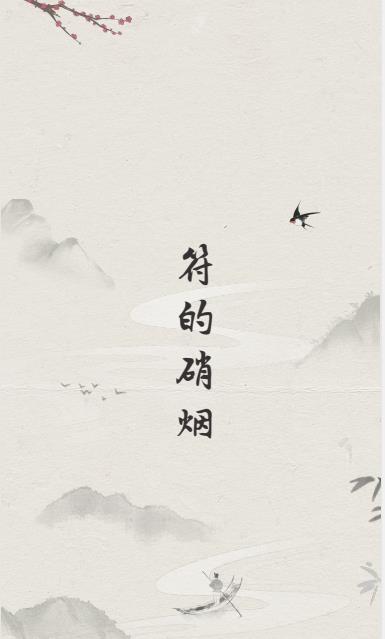 符的硝烟